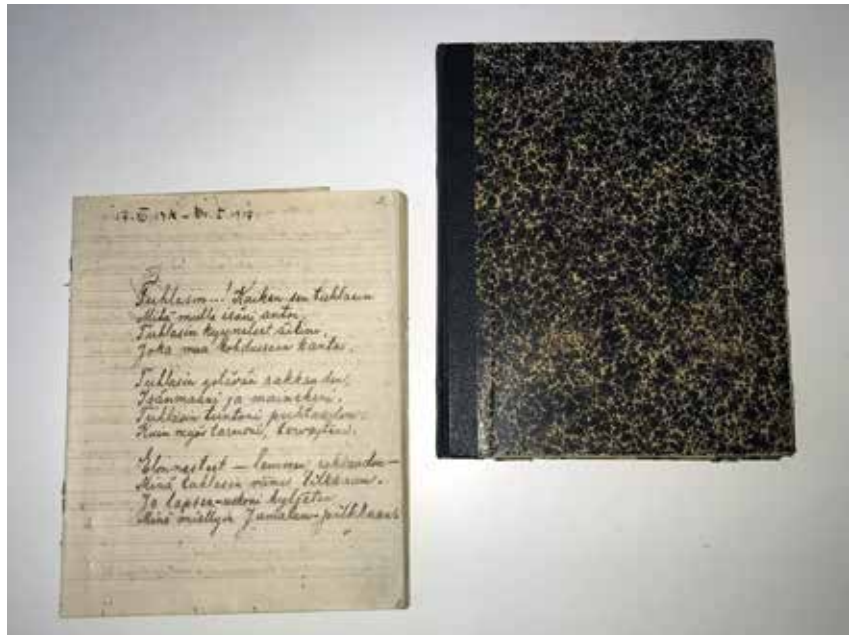 2.
17. 19 – 1917
Tuhlasin...! Kaiken sen tuhlasin
Mitä mulle isäni antoi,
Tuhlasin kyyneleet äitini,
Joka mua kohdussaan kantoi.
Tuhlasin ystävän rakkauden,
Isänmaani ja maineheni.
Tuhlasin tuntoni puhtauden
Kuin myös tarmoni, terveyteni.
– lemmen rakkauden –
Minä tuhlasin viimis tilkkaan.
Ja lapsen-uskoni hyljäten
Minä miellyin Jumalan-pilkkaan.